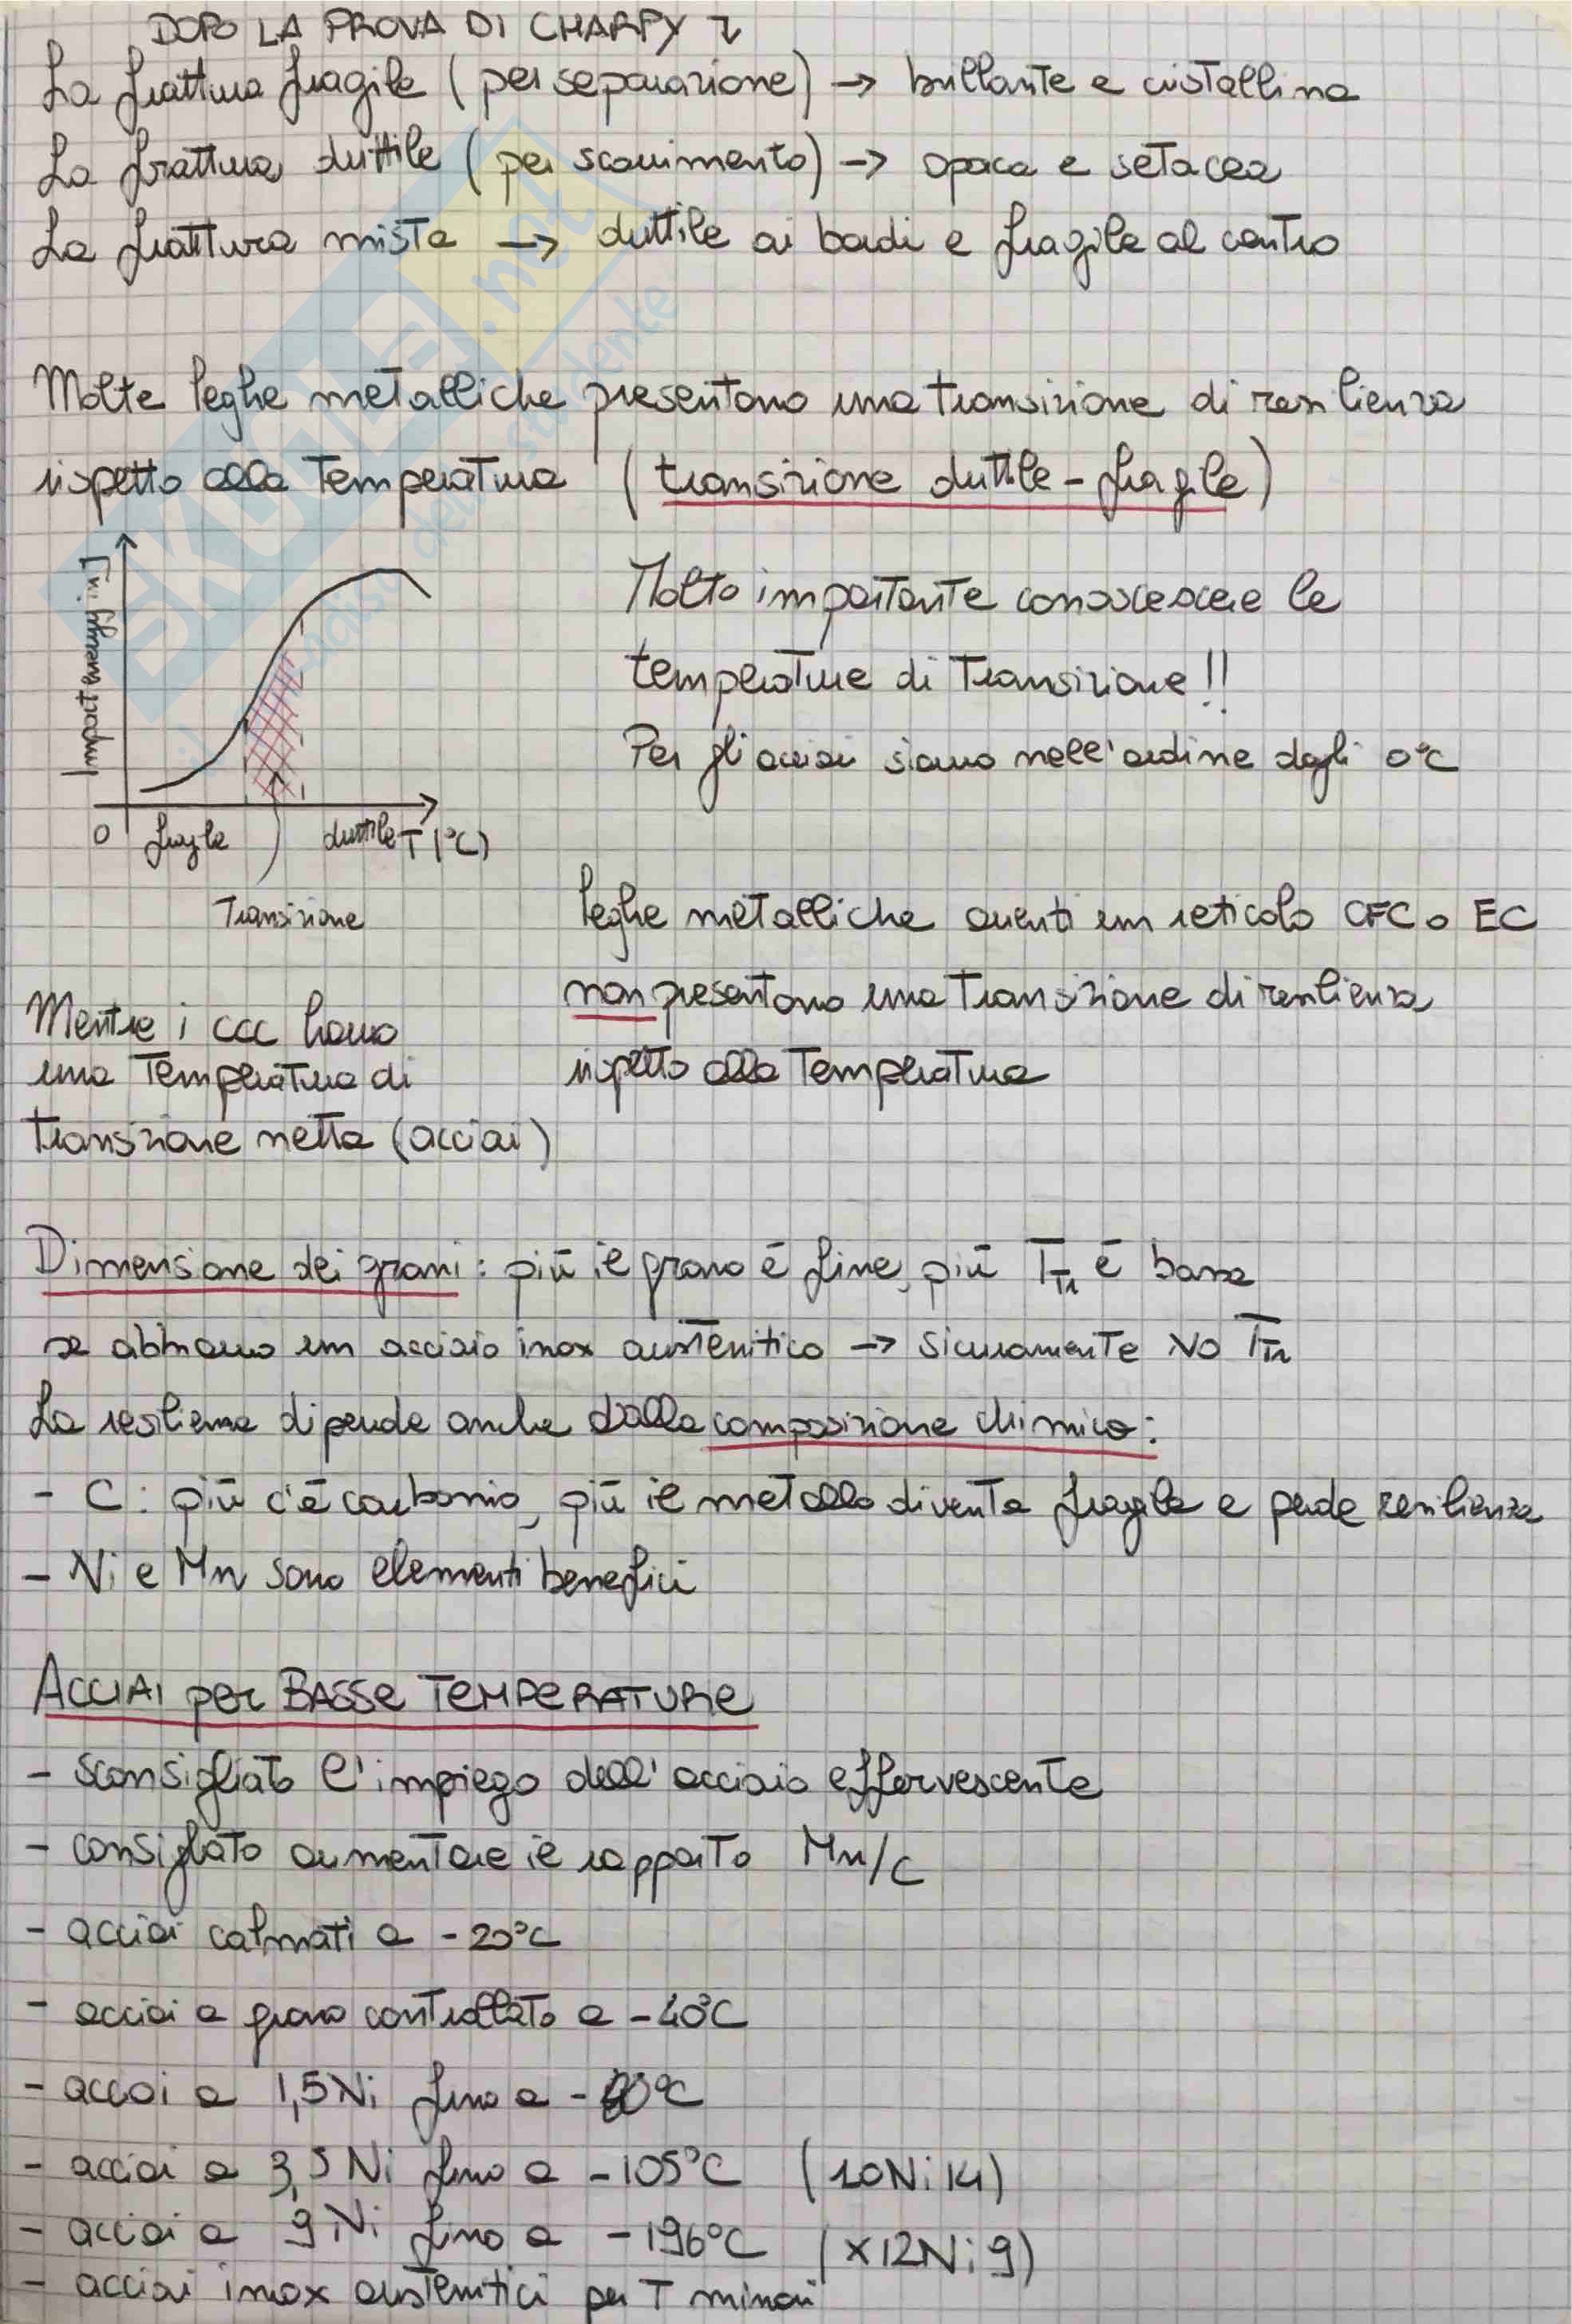 DOPO LA PROVA DI CHARPY
La frattura fragile (per separazione) → brillante e cristallina
La frattura duttile (per scorrimento) → opaca e setacea
La frattura mista → duttile ai bordi e fragile al centro
Molte leghe metalliche presentano una transizione di resilienza
rispetto alla temperatura (transizione duttile-fragile)
Impact energy in J
0 fragile duttile T (°C)
Transizione
Molto importante conoscescere le
temperature di transizione!!
Per gli acciai siamo nell'ordine degli 0°C
leghe metalliche aventi un reticolo CFC o EC
non presentano una transizione di resilienza
rispetto alla temperatura
Mentre i CCC hanno
una temperatura di
transizione netta (acciai)
Dimensione dei grani: più il grano è fine, più TTr è bassa
se abbiamo un acciaio inox austenitico → sicuramente NO TTr
La resilienza dipende anche dalla composizione chimica:
- C: più c'è carbonio, più il metallo diventa fragile e perde resilienza
- Ni e Mn sono elementi benefici
ACCIAI per BASSE TEMPERATURE
- sconsigliato l'impiego dell'acciaio effervescente
- consigliato aumentare il rapporto Mn/C
- acciai calmati a -20°C
- acciai a grano controllato a -40°C
- acciai a 1,5Ni fino a
- acciai a 3,5 Ni fino a -105°C (10Ni14)
- acciai a 9Ni fino a -196°C (X12Ni9)
- acciai inox austenitici per T minori
SKUOLA.net
il paradiso dello studente